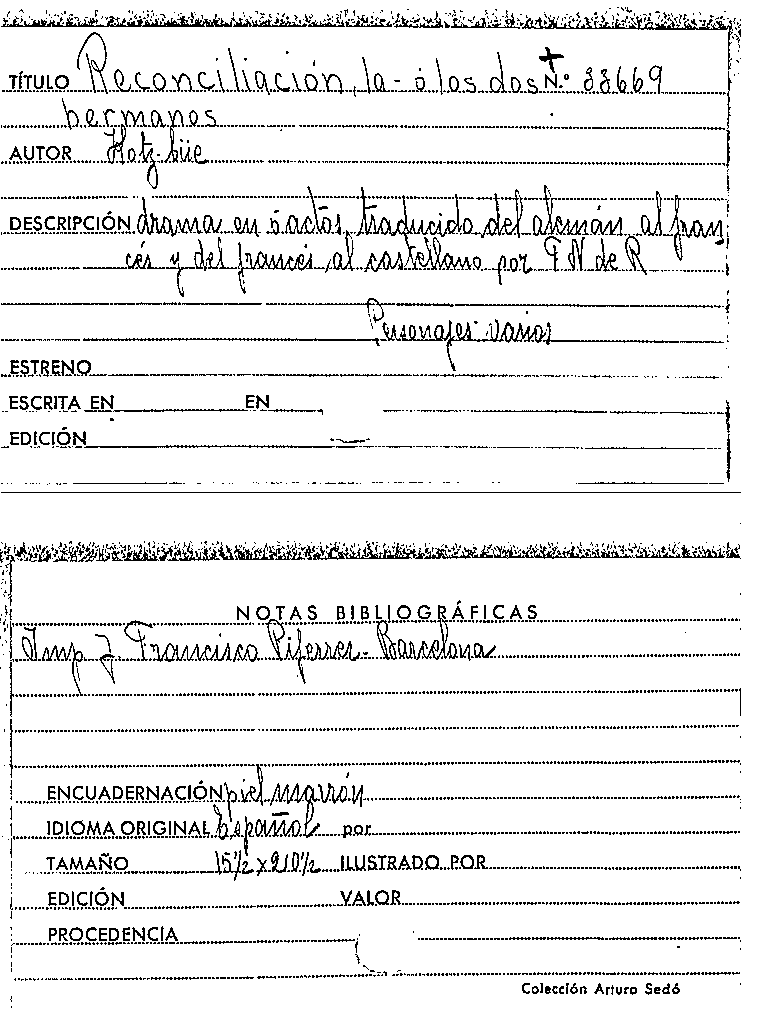 TÍTULO Reconciliación, la - ó los dos N.º 33669
hermanos
AUTOR Kotz-büe
DESCRIPCIÓN drama en 5 actos, traducido del alemán al fran
cés y del francés al castellano por F N de R
Personajes: varios
ESTRENO
ESCRITA EN EN
EDICIÓN
NOTAS BIBLIOGRÁFICAS
Imp J. Francisco Piferrer - Barcelona
ENCUADERNACIÓN piel marrón
IDIOMA ORIGINAL Español por
TAMAÑO 15½ x 210½ ILUSTRADO POR
EDICIÓN VALOR
PROCEDENCIA
Colección Arturo Sedó